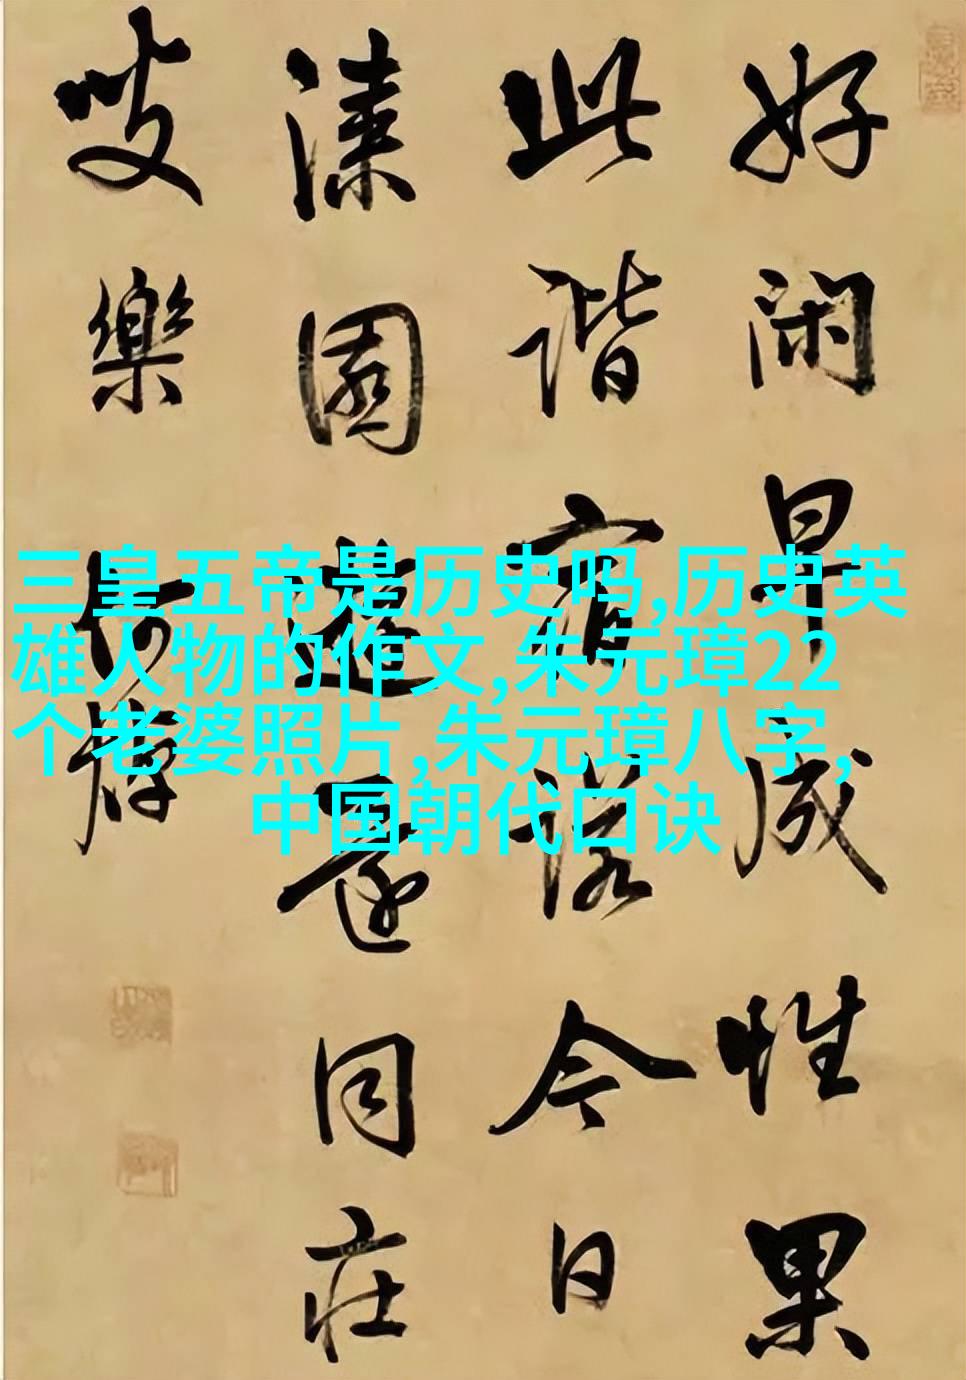 好闲早成性果
此谐宿诺今日
漆園遊還同庄
叟樂
三皇五帝是历史吗,历史英
雄人物的作文,朱元璋22
个老婆照片,朱元璋八字,
中国朝代口诀